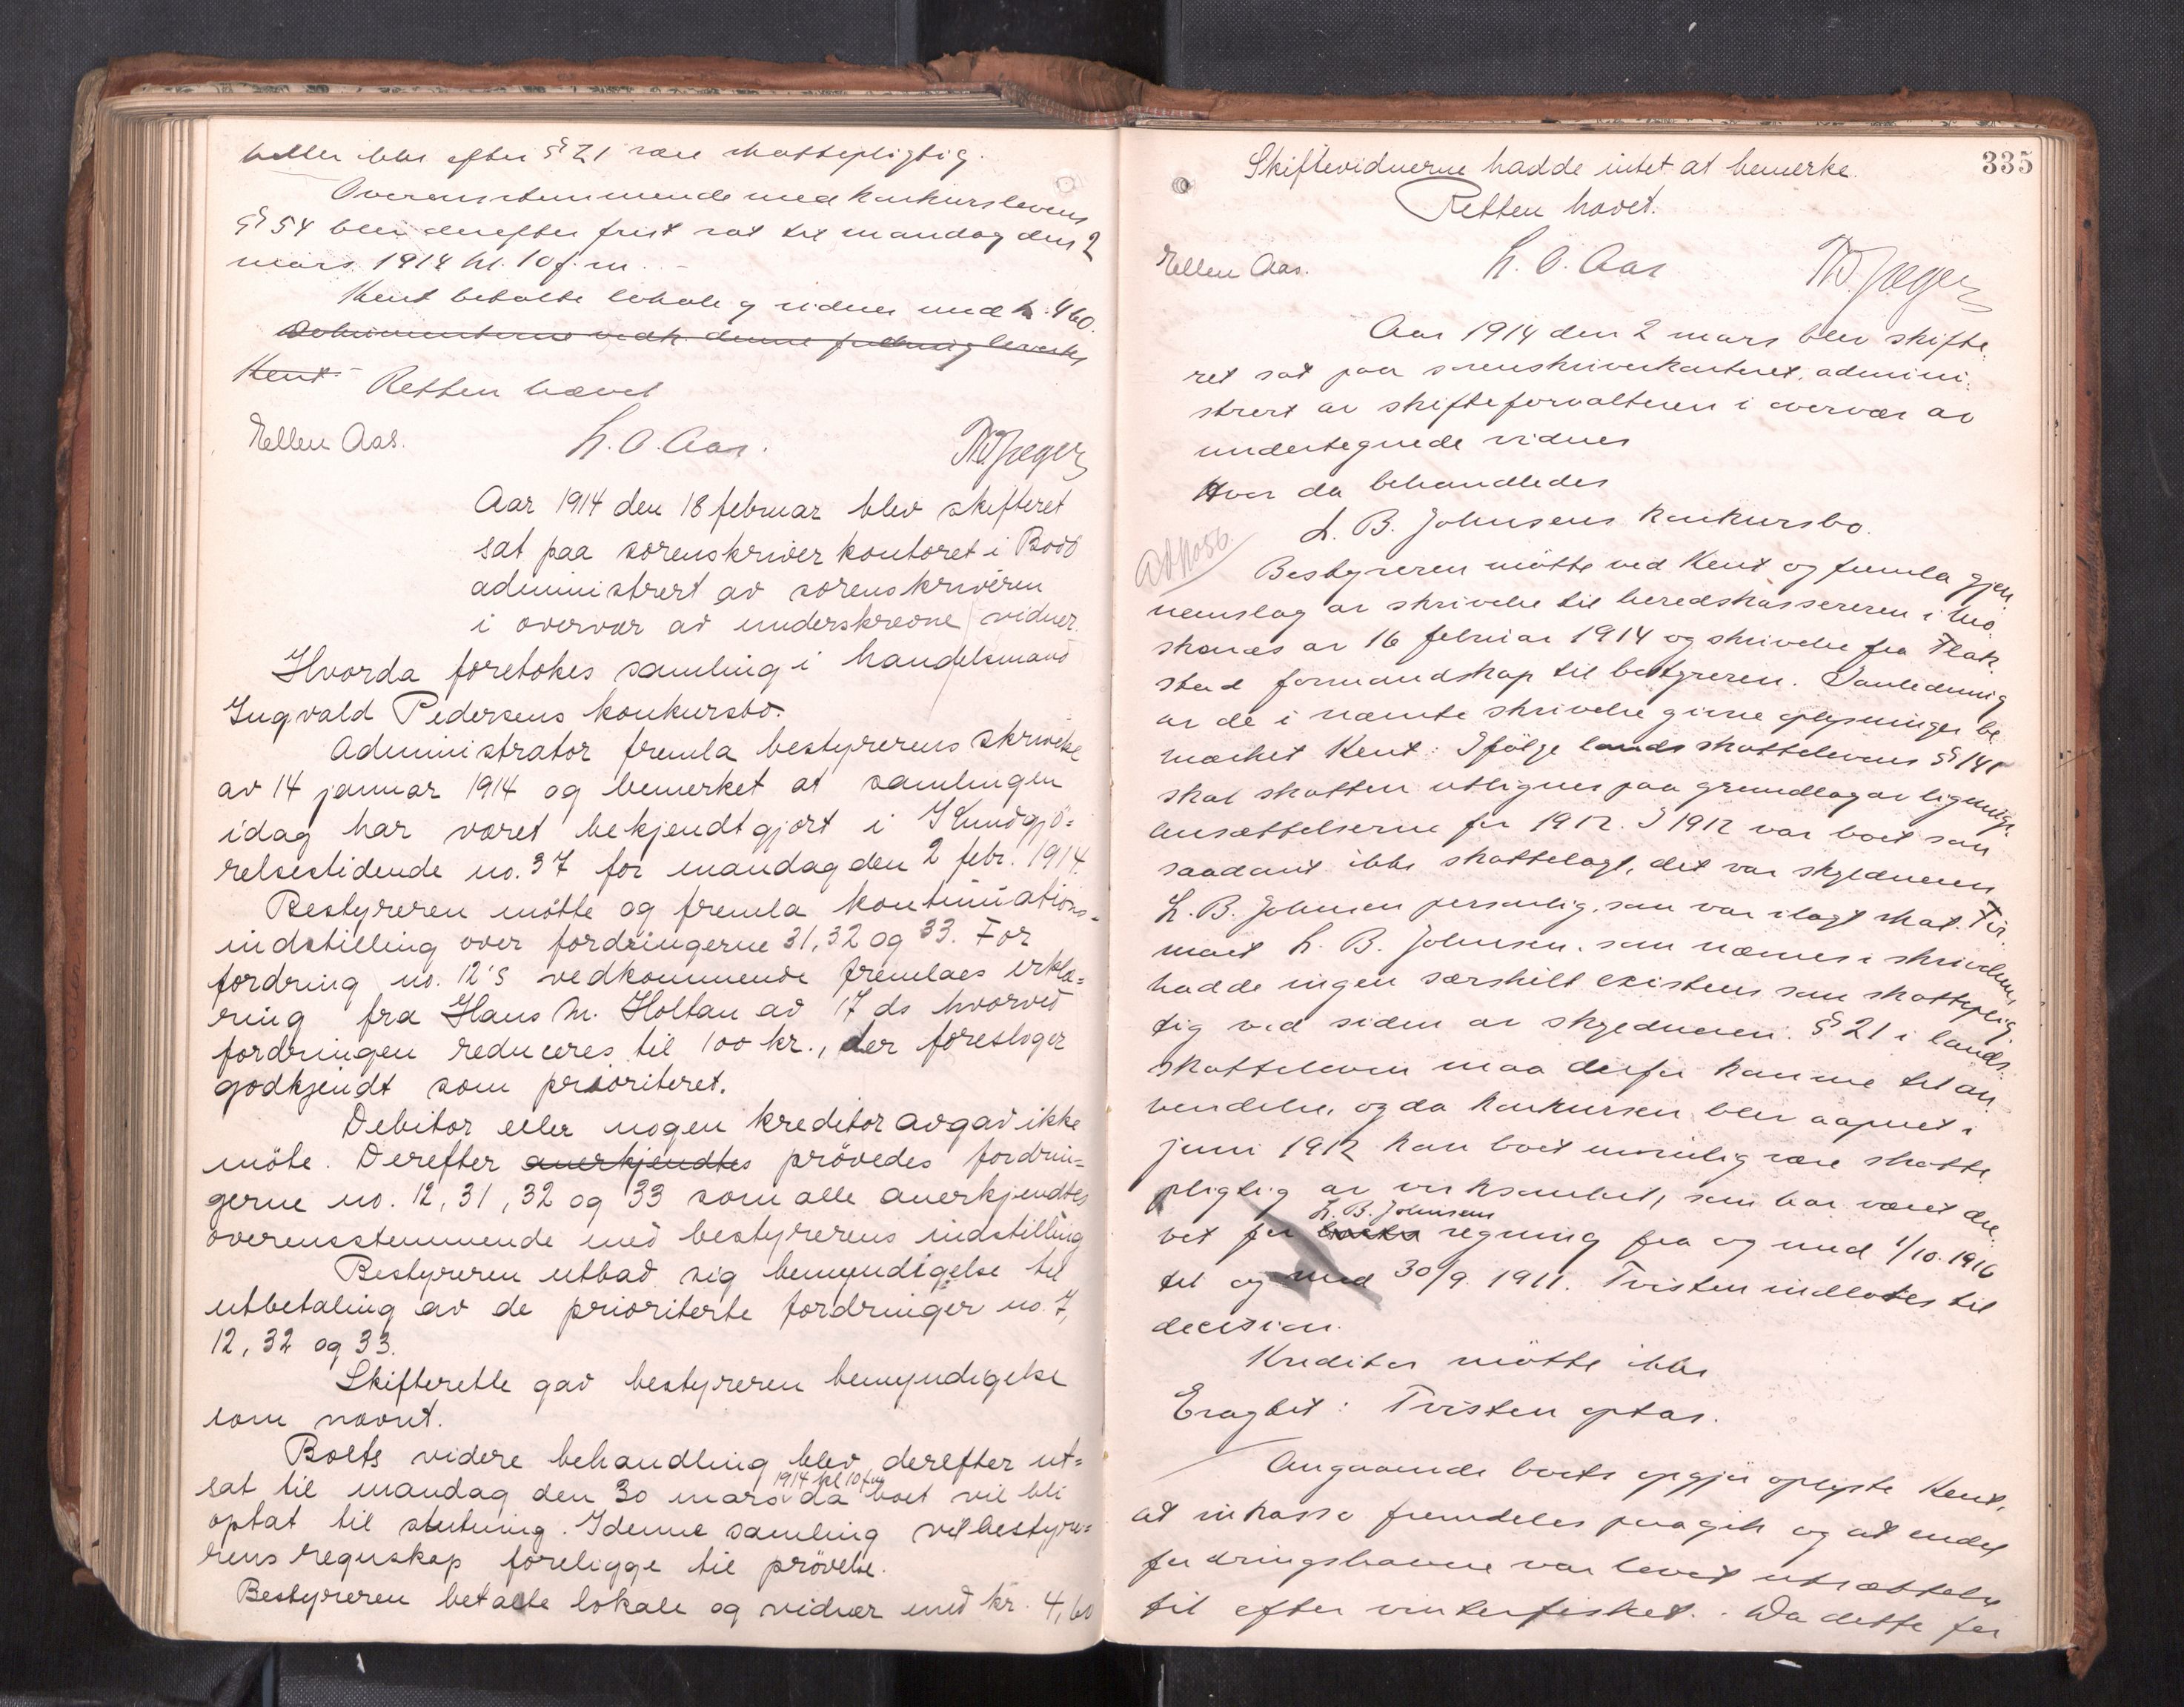 heller ikke efter § 21 være skattepligtig.
Overensstemmende med konkurslovens
§ 54 blev derefter frist sat til mandag den 2
mars 1914 kl. 10 f.m. -
Kent betalte lokale og vidner med kr. 4.60.
Dokumenterne vedk. denne fordring leveres
Kent. Retten hævet
Ellen Aas. L. O. Aas. Th. Jæger
Aar 1914 den 18 februar blev skifteret
sat paa sorenskriverkontoret i Bodö
administrert av sorenskriveren
i overvær av underskrevne vidner.
Hvorda foretokes samling i handelsmand
Ingvald Pedersens konkursbo.
Administrator fremla bestyrerens skrivelse
av 14 januar 1914 og bemerket at samlingen
idag har været bekjendtgjort i Kundgjö=
relsestidende no. 37 for mandag den 2 febr. 1914.
Bestyreren mötte og fremla kontinuations=
indstilling over fordringerne 31, 32 og 33. For
fordring no. 12's vedkommende fremlaes erklæ=
ring fra Hans M. Holtan av 17 ds hvorved
fordringen reduceres til 100 kr., der foresloges
godkjendt som prioriteret.
Debitor eller nogen kreditor avgav ikke
möte. Derefter anerkjendtes prövedes fordrin=
gerne no. 12, 31, 32 og 33 som alle anerkjendtes
overensstemmende med bestyrerens indstilling
Bestyreren utbad sig bemyndigelse til
utbetaling av de prioriterte fordringer no. 7,
12, 32 og 33.
Skifterette gav bestyreren bemyndigelse
som nævnt.
Boets videre behandling blev derefter ut=
1914 kl 10 fm
sat til mandag den 30 mars da boet vil bli
optat til slutning. I denne samling vil besty=
rens regnskap foreligge til prövelse.
Bestyreren betalte lokale og vidner med kr. 4,60
335
Skiftevidnerne hadde intet at bemerke.
Retten hævet.
Ellen Aas. L. O. Aas Th. Jæger
Aar 1914 den 2 mars blev skifte
ret sat paa sorenskriverkontoret, admini
strert av skifteforvalteren i overvær av
undertegnede vidner
Hvor da behandledes
L. B. Johnsens konkursbo.
Bestyreren mötte ved Kent og fremla gjen
nemslag av skrivelse til heredskassereren i Mo
skenæs av 16 februar 1914 og skrivelse fra Flak
stad formandskap til bestyreren. I anledning
av de i nævnte skrivelse givne oplysninger be
mærket Kent: Ifölge landsskattelovens § 141
skal skatten utlignes paa grundlag av lignings
ansættelserne for 1912. I 1912 var boet som
saadant ikke skattelagt, det var skyldneren
L. B. Johnsen personlig, som var ilagt skat. Fir
maet L. B. Johnsen, som nævnes i skrivelsen,
hadde ingen særskilt existens som skattplig
tig ved siden av skyldneren. § 21 i lands
skatteloven maa derfor komme til an
vendelse, og da konkursen blev aapnet i
juni 1912 kan boet umulig være skatte
pligtig av virksomhet, som har været dre
L. B. Johnsens
vet for boets regning fra og med 1/10. 1910
til og med 30/9. 1911. Tvisten indlotes til
decision.
Kreditor mötte ikke
Eragtet: Tvisten optas.
Angaaende boets opgjör oplyste Kent,
at inkasso fremdeles paagik og at endel
fordringshavere var lovet utsættelse
til efter vinterfisket. Da dette for